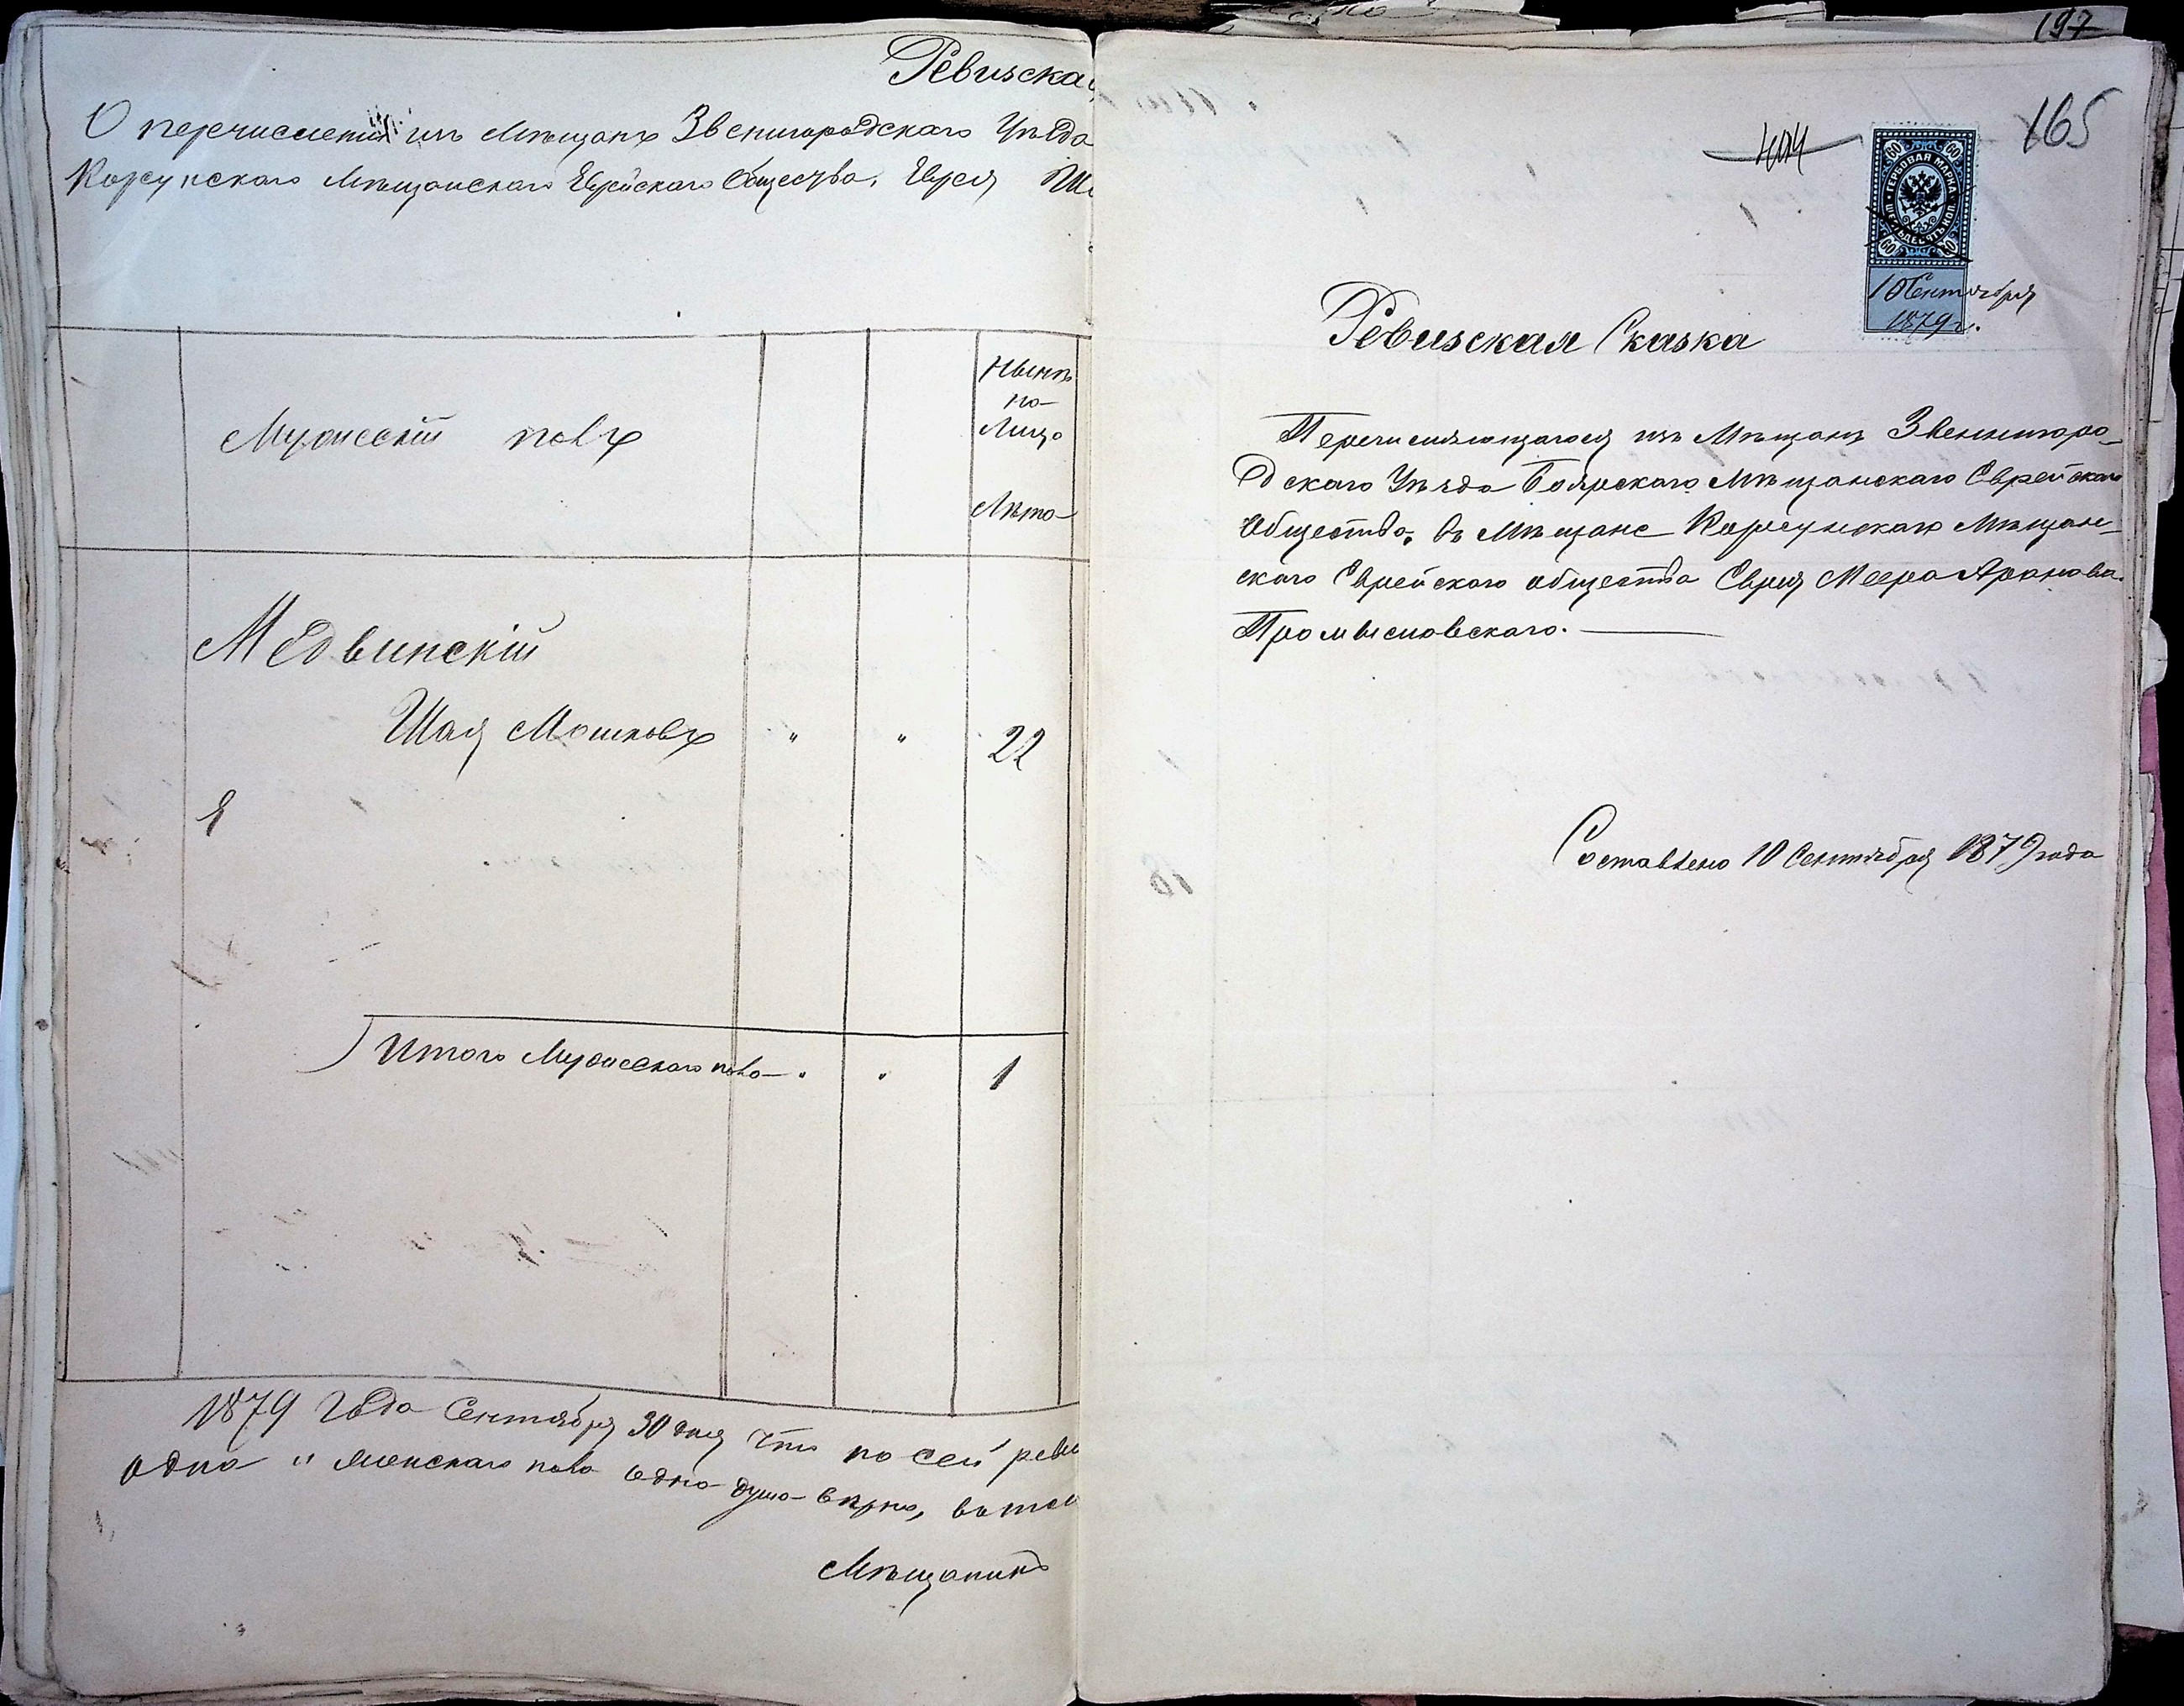 Ревизская
О перечислении изъ Мѣщанъ Звенигородскаго Уѣзда
Корсунскаго Мѣщанскаго Еврейскаго Общества, Еврея
Мужескій полъ
Нынѣ
на-
Лицо
Лѣта
Медвинскій
Шая Мошковъ " " 22
1
Итого Мужескаго пола " " 1
1879 Года Сентября 30 дня Что по сей реви
одна и женскаго пола одна душа вѣрно, въ том
Мѣщанинъ
197
165
404
60 60
ГЕРБОВАЯ МАРКА
ШЕСТЬДЕСЯТЪ КОП.
60 60
10 Сентября
1879 г.
Ревизская Сказка
Перечисляющагося изъ Мѣщанъ Звенигоро-
дскаго Уѣзда Боярскаго Мѣщанскаго Еврейскаго
Общества, въ Мѣщане Корсунскаго Мѣщан-
скаго Еврейскаго общества Еврея Меера Аранова
Промысловскаго.
Составлено 10 Сентября 1879 года